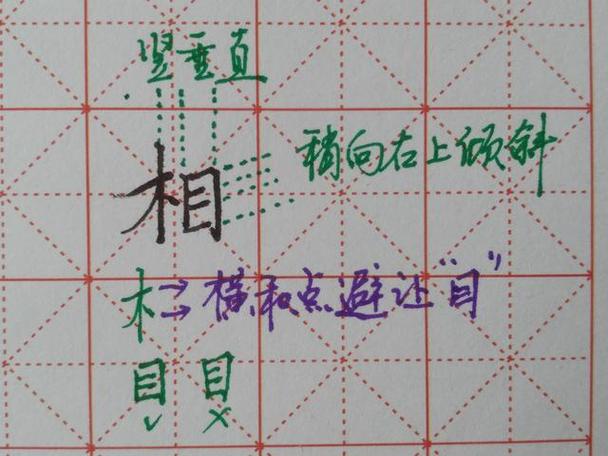 竖垂直
相
稍向右上倾斜
木→横和点避让“目”
目 目
✓ ✗